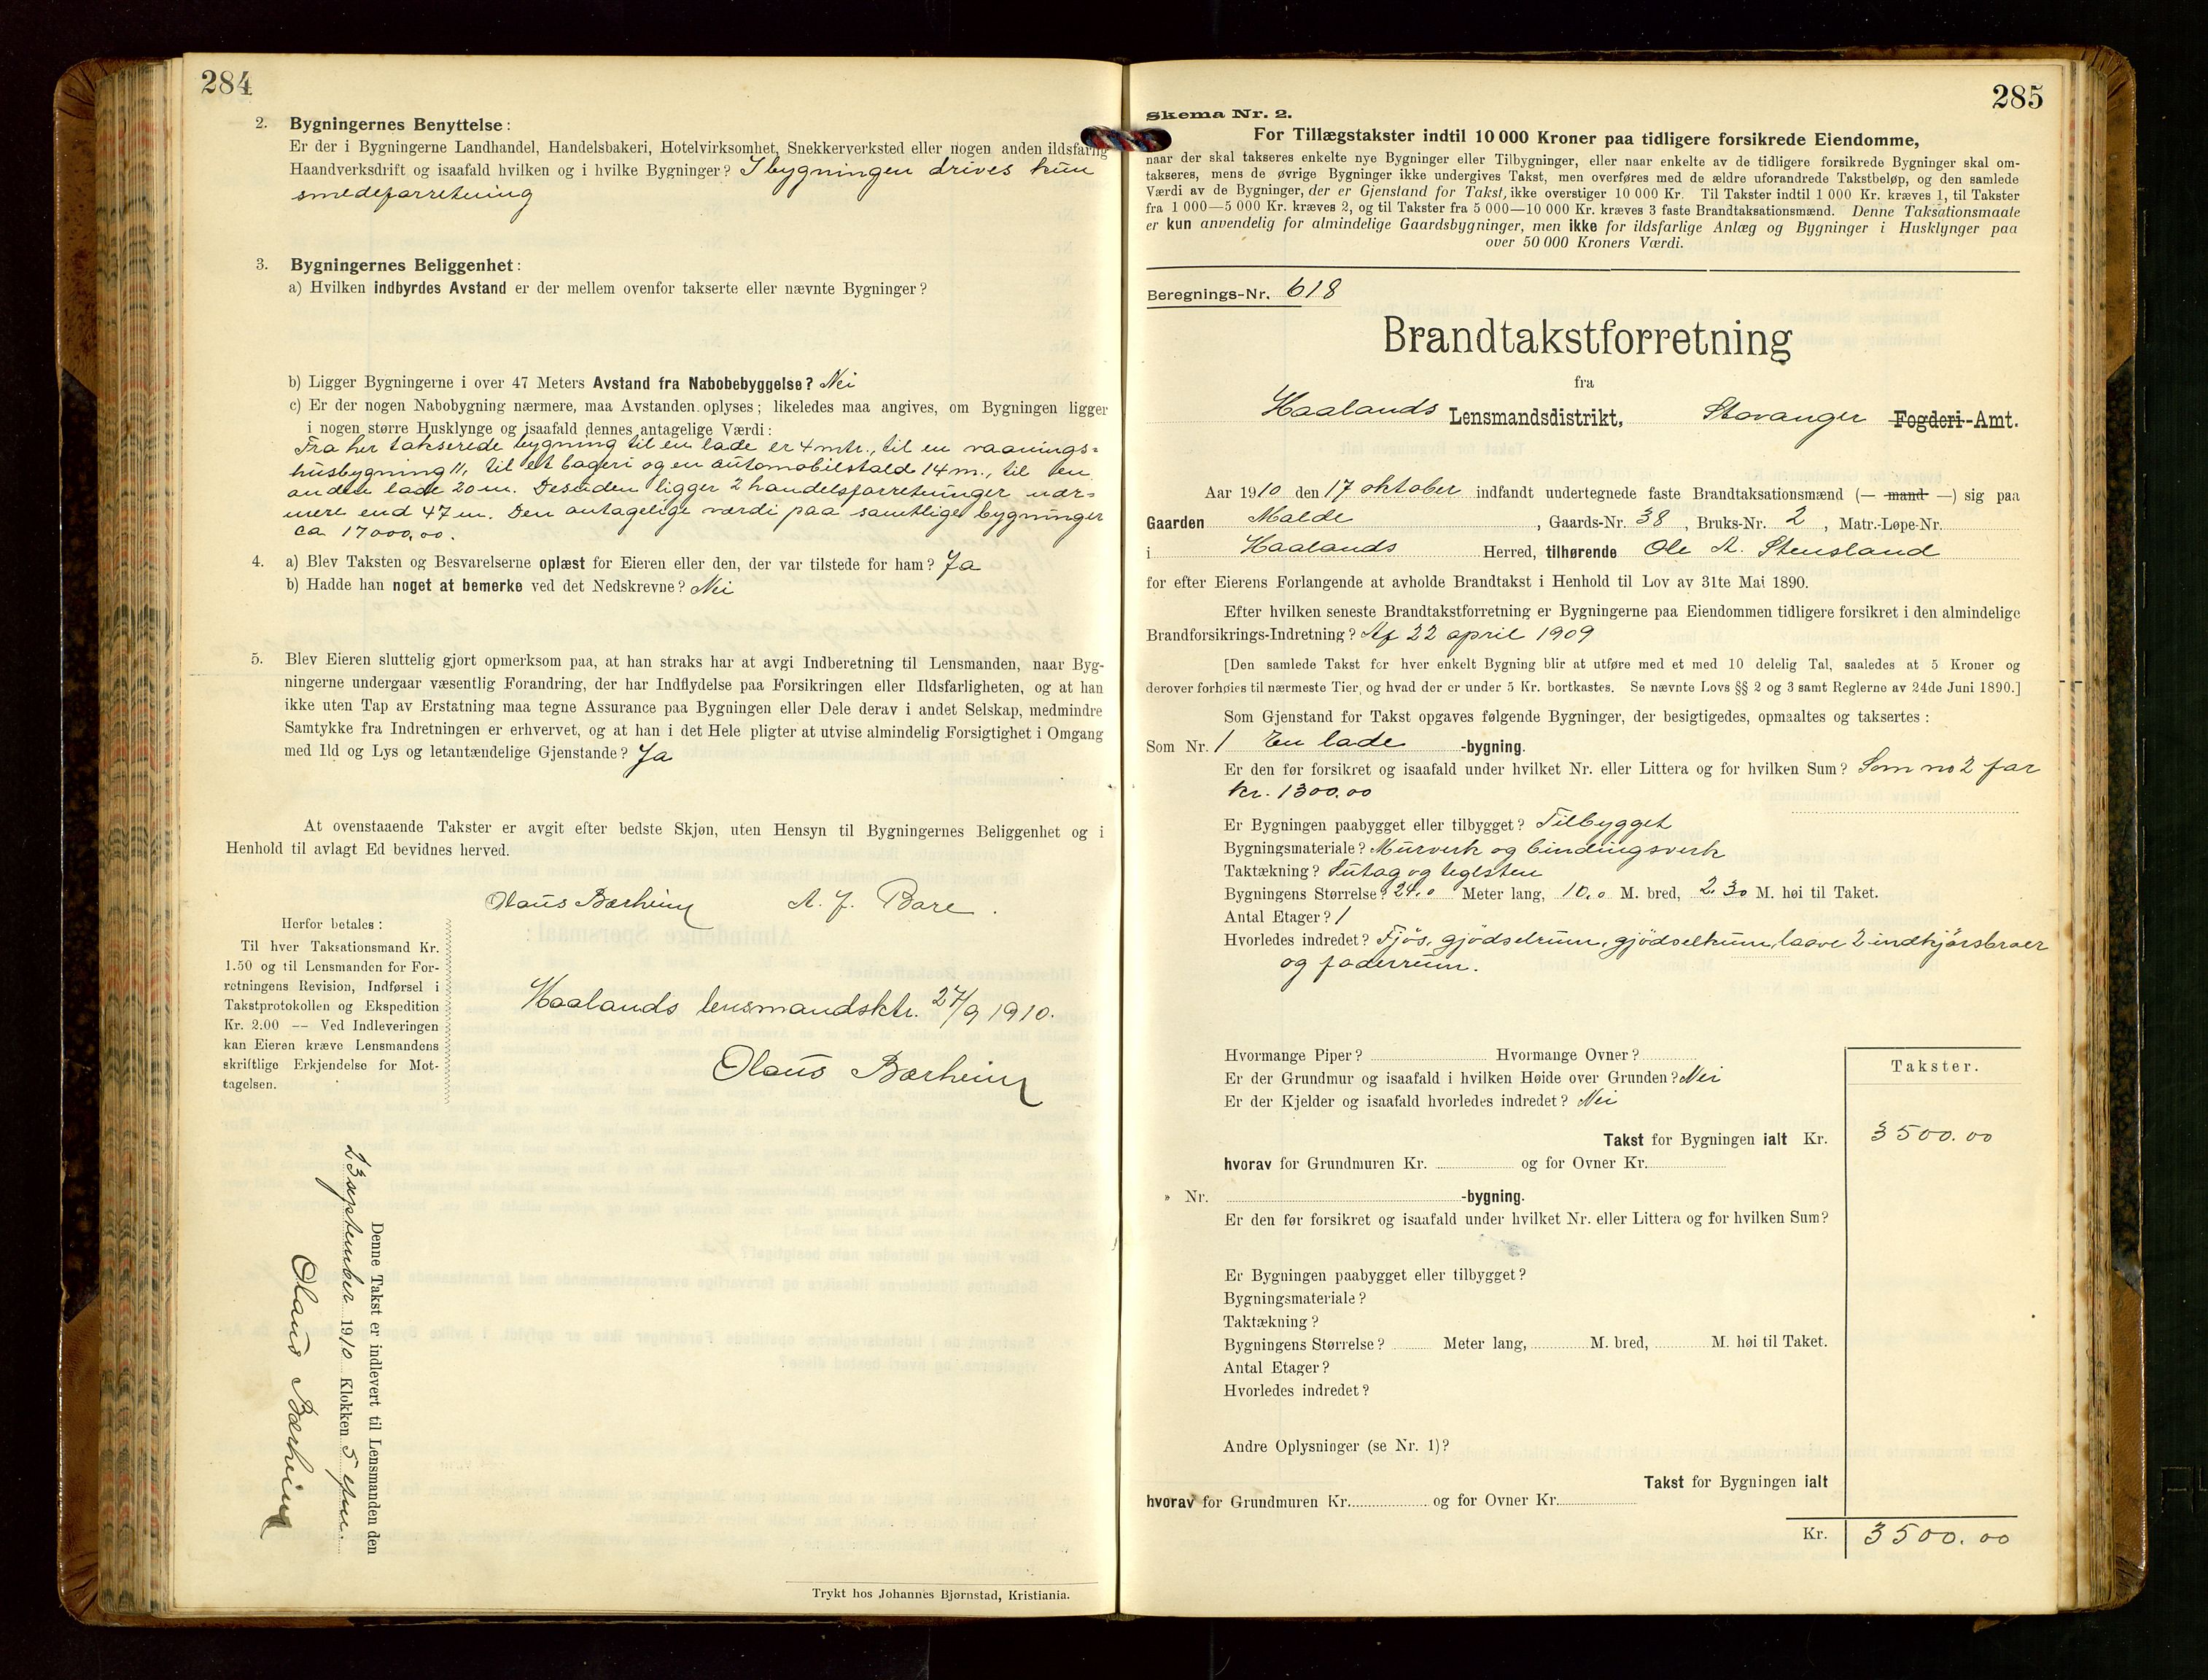 284
2. Bygningernes Benyttelse:
Er der i Bygningerne Landhandel, Handelsbakeri, Hotelvirksomhet, Snekkerverksted eller nogen anden ildsfarlig
Haandverksdrift og isaafald hvilken og i hvilke Bygninger? I bygningen drives kun
smedeforretning
3. Bygningernes Beliggenhet:
a) Hvilken indbyrdes Avstand er der mellem ovenfor takserte eller nævnte Bygninger?
b) Ligger Bygningerne i over 47 Meters Avstand fra Nabobebyggelse? Nei
c) Er der nogen Nabobygning nærmere, maa Avstanden oplyses; likeledes maa angives, om Bygningen ligger
i nogen større Husklynge og isaafald dennes antagelige Værdi:
Fra her takserede bygning til en lade er 4 mtr., til en vaanings-
husbygning 11, til et bageri og en automobilstald 14 m., til en
anden lade 20 m. Desuden ligger 2 handelsforretninger nær-
mere end 47 m. Den antagelige værdi paa samtlige bygninger
ca 17000,00.
4. a) Blev Taksten og Besvarelserne oplæst for Eieren eller den, der var tilstede for ham? Ja
b) Hadde han noget at bemerke ved det Nedskrevne? Nei
5. Blev Eieren sluttelig gjort opmerksom paa, at han straks har at avgi Indberetning til Lensmanden, naar Byg-
ningerne undergaar væsentlig Forandring, der har Indflydelse paa Forsikringen eller Ildsfarligheten, og at han
ikke uten Tap av Erstatning maa tegne Assurance paa Bygningen eller Dele derav i andet Selskap, medmindre
Samtykke fra Indretningen er erhvervet, og at han i det Hele pligter at utvise almindelig Forsigtighet i Omgang
med Ild og Lys og letantændelige Gjenstande? Ja
At ovenstaaende Takster er avgit efter bedste Skjøn, uten Hensyn til Bygningernes Beliggenhet og i
Henhold til avlagt Ed bevidnes herved.
Olaus Bærheim A. J. Bore.
Herfor betales:
Til hver Taksationsmand Kr.
1.50 og til Lensmanden for For-
retningens Revision, Indførsel i
Takstprotokollen og Ekspedition
Kr. 2.00 — Ved Indleveringen
kan Eieren kræve Lensmandens
skriftlige Erkjendelse for Mot-
tagelsen.
Haalands lensmandsktr. 27/9 1910.
Olaus Bærheim
Denne Takst er indlevert til Lensmanden den
23 september 1910 Klokken 5 efm.
Olaus Bærheim
Trykt hos Johannes Bjørnstad, Kristiania.
285
Skema Nr. 2.
For Tillægstakster indtil 10 000 Kroner paa tidligere forsikrede Eiendomme,
naar der skal takseres enkelte nye Bygninger eller Tilbygninger, eller naar enkelte av de tidligere forsikrede Bygninger skal om-
takseres, mens de øvrige Bygninger ikke undergives Takst, men overføres med de ældre uforandrede Takstbeløp, og den samlede
Værdi av de Bygninger, der er Gjenstand for Takst, ikke overstiger 10 000 Kr. Til Takster indtil 1 000 Kr. kræves 1, til Takster
fra 1 000—5 000 Kr. kræves 2, og til Takster fra 5 000—10 000 Kr. kræves 3 faste Brandtaksationsmænd. Denne Taksationsmaate
er kun anvendelig for almindelige Gaardsbygninger, men ikke for ildsfarlige Anlæg og Bygninger i Husklynger paa
over 50 000 Kroners Værdi.
Beregnings-Nr. 618
Brandtakstforretning
fra
Haalands Lensmandsdistrikt, Stavanger Fogderi-Amt.
Aar 1910 den 17 oktober indfandt undertegnede faste Brandtaksationsmænd (— mand —) sig paa
Gaarden Malde, Gaards-Nr. 38, Bruks-Nr. 2, Matr.-Løpe-Nr.
i Haalands Herred, tilhørende Ole A. Stensland
for efter Eierens Forlangende at avholde Brandtakst i Henhold til Lov av 31te Mai 1890.
Efter hvilken seneste Brandtakstforretning er Bygningerne paa Eiendommen tidligere forsikret i den almindelige
Brandforsikrings-Indretning? Af 22 april 1909
[Den samlede Takst for hver enkelt Bygning blir at utføre med et med 10 delelig Tal, saaledes at 5 Kroner og
derover forhøies til nærmeste Tier, og hvad der er under 5 Kr. bortkastes. Se nævnte Lovs §§ 2 og 3 samt Reglerne av 24de Juni 1890.]
Som Gjenstand for Takst opgaves følgende Bygninger, der besigtigedes, opmaaltes og taksertes:
Som Nr. 1 En lade -bygning.
Er den før forsikret og isaafald under hvilket Nr. eller Littera og for hvilken Sum? Som no 2 for
kr. 1300.00
Er Bygningen paabygget eller tilbygget? Tilbygget
Bygningsmateriale? Murverk og bindingsverk
Taktækning? Sutag og teglsten
Bygningens Størrelse? 24.0 Meter lang, 10.0 M. bred, 2.30 M. høi til Taket.
Antal Etager? 1
Hvorledes indredet? Fjøs, gjødselrum, gjødselkum, laave 2 indkjørsbroer
og foderrum.
Hvormange Piper? Hvormange Ovner?
Er der Grundmur og isaafald i hvilken Høide over Grunden? Nei
Er der Kjelder og isaafald hvorledes indredet? Nei
Takster.
Takst for Bygningen ialt Kr. 3500.00
hvorav for Grundmuren Kr. og for Ovner Kr.
» Nr. -bygning.
Er den før forsikret og isaafald under hvilket Nr. eller Littera og for hvilken Sum?
Er Bygningen paabygget eller tilbygget?
Bygningsmateriale?
Taktækning?
Bygningens Størrelse? Meter lang, M. bred, M. høi til Taket.
Antal Etager?
Hvorledes indredet?
Andre Oplysninger (se Nr. 1)?
Takst for Bygningen ialt
hvorav for Grundmuren Kr. og for Ovner Kr.
Kr. 3500.00